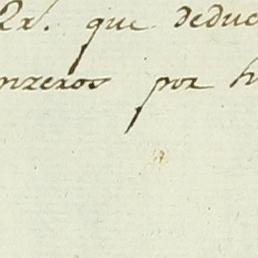 2r. que deduc
nzeros por h